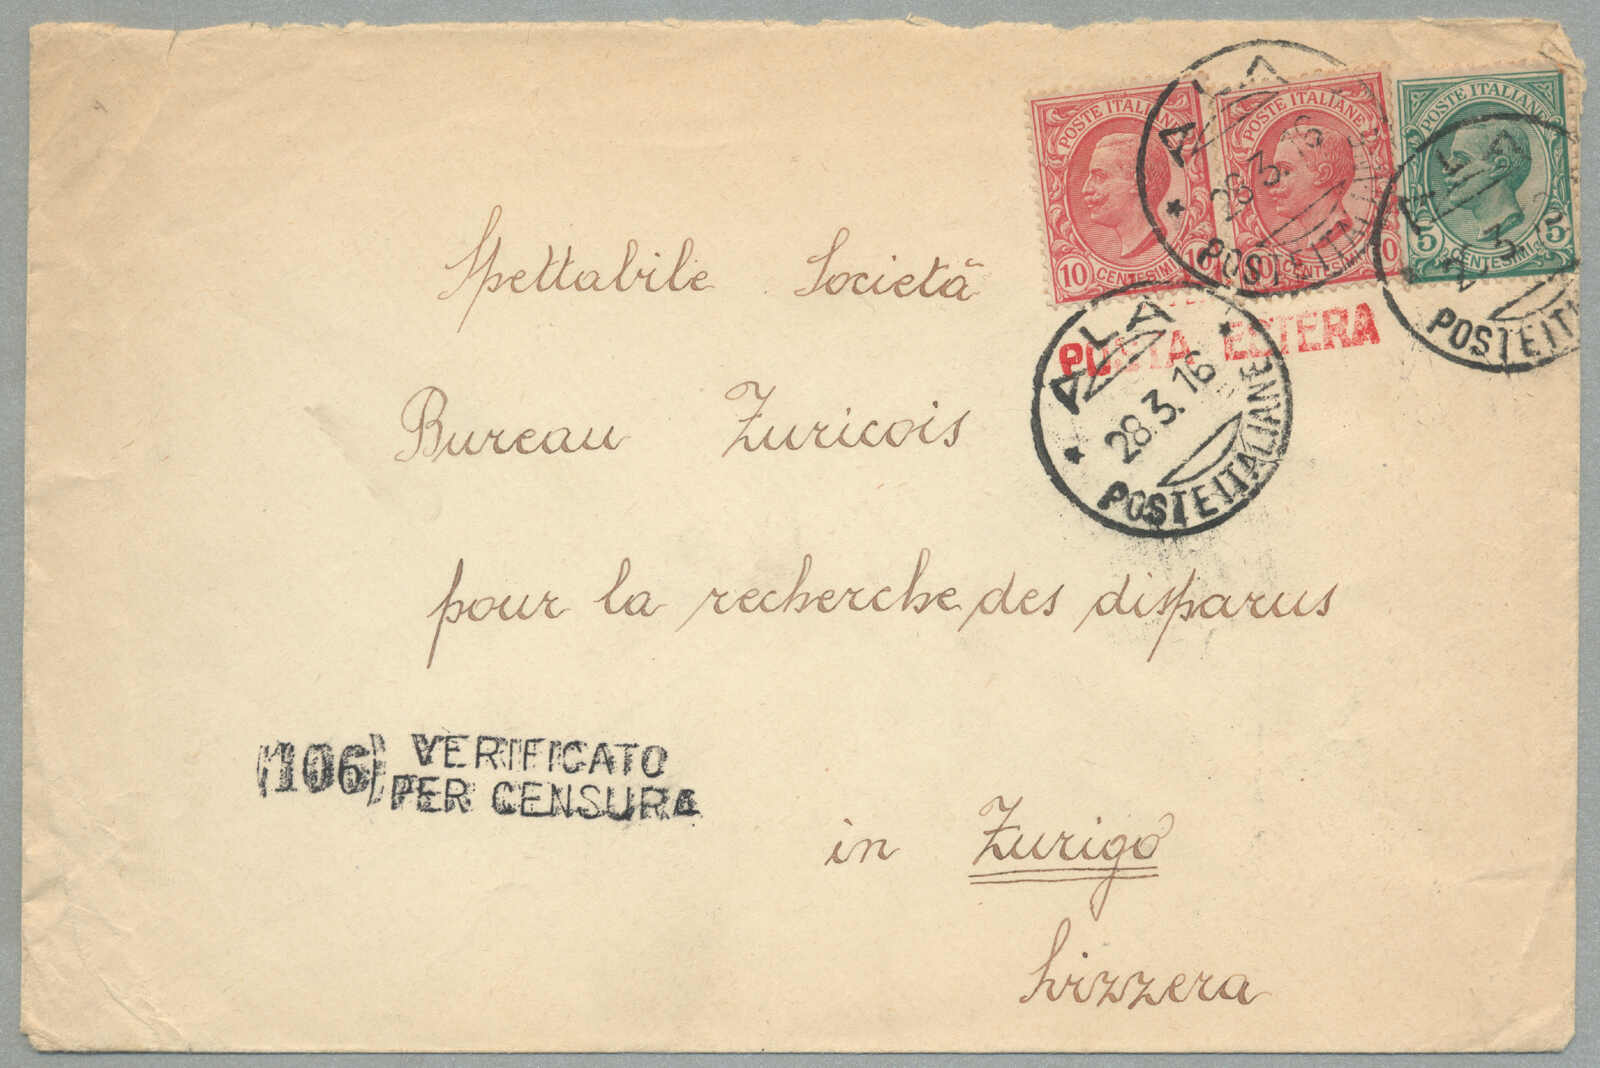 POSTE ITALIANE
10 CENTESIMI 10
POSTE ITALIANE
10 CENTESIMI 10
POSTE ITALIANE
5 CENTESIMI 5
ALA
28.3.16
POSTE ITALIANE
ALA
POSTE ITALIANE
POSTA ESTERA
ALA
28.3.16
POSTE ITALIANE
Spettabile Società
Bureau Zuricois
pour la recherche des disparus
(106) VERIFICATO
PER CENSURA
in Zurigo
Svizzera